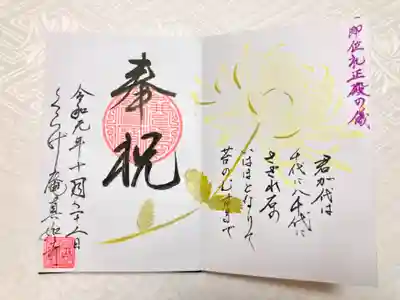 即位礼正殿の儀
君が代は
千代に八千代に
さざれ石の
いはほとなりて
苔のむすまで
奉祝
令和元年十月二十二日